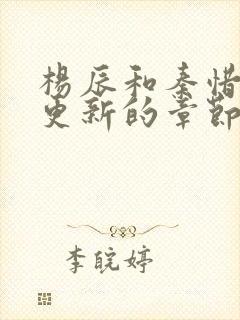 楊辰和秦惜
更新的章節
李皖婷